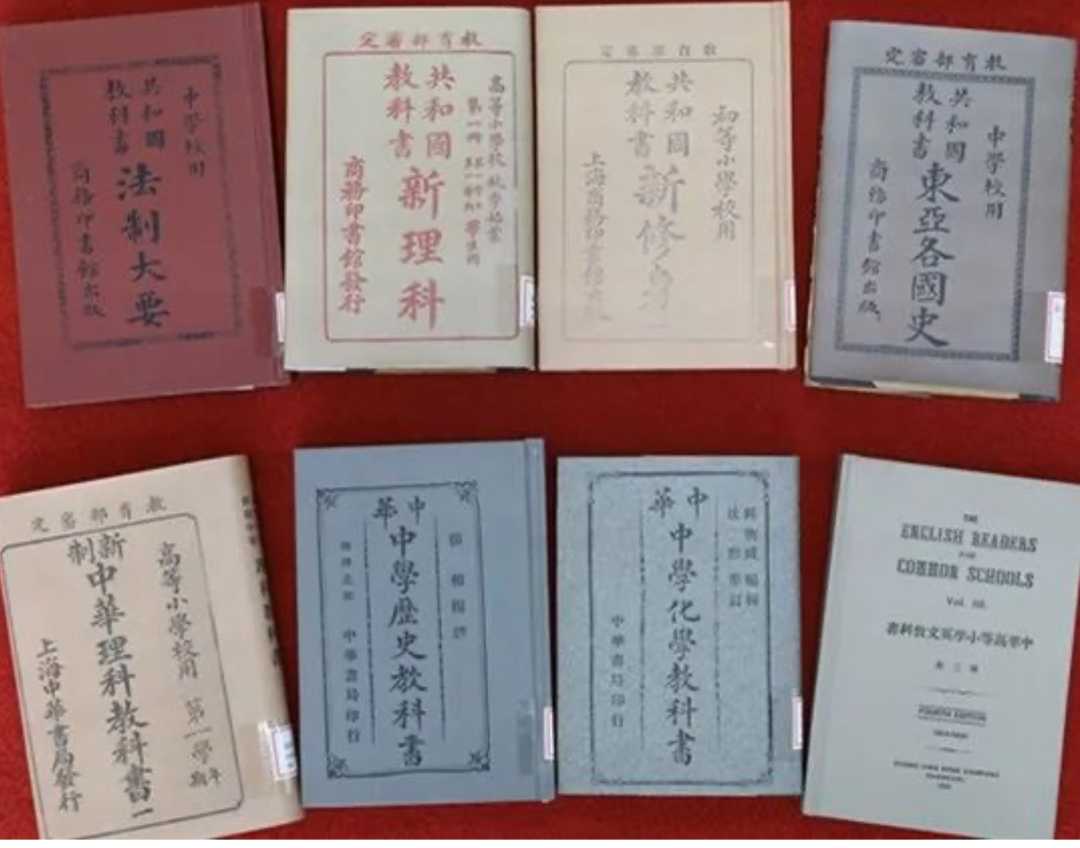 中學校用
共和國
教科書
法制大要
商務印書館出版
教育部審定
高等小學校秋季始業
共和國
教科書
新理科
商務印書館發行
教育部審定
初等小學校用
共和國
教科書
新修身
教育部審定
中學校用
共和國
教科書
東亞各國史
商務印書館出版
教育部審定
高等小學校用
第一學年
新制
中華理科教科書一
上海中華書局發行
中華
中學歷史教科書
中華書局印行
中華
中學化學教科書
中華書局印行
THE
ENGLISH READERS
FOR
COMMON SCHOOLS
Vol. III.
中華高等小學英文教科書
第三冊
FOURTH EDITION